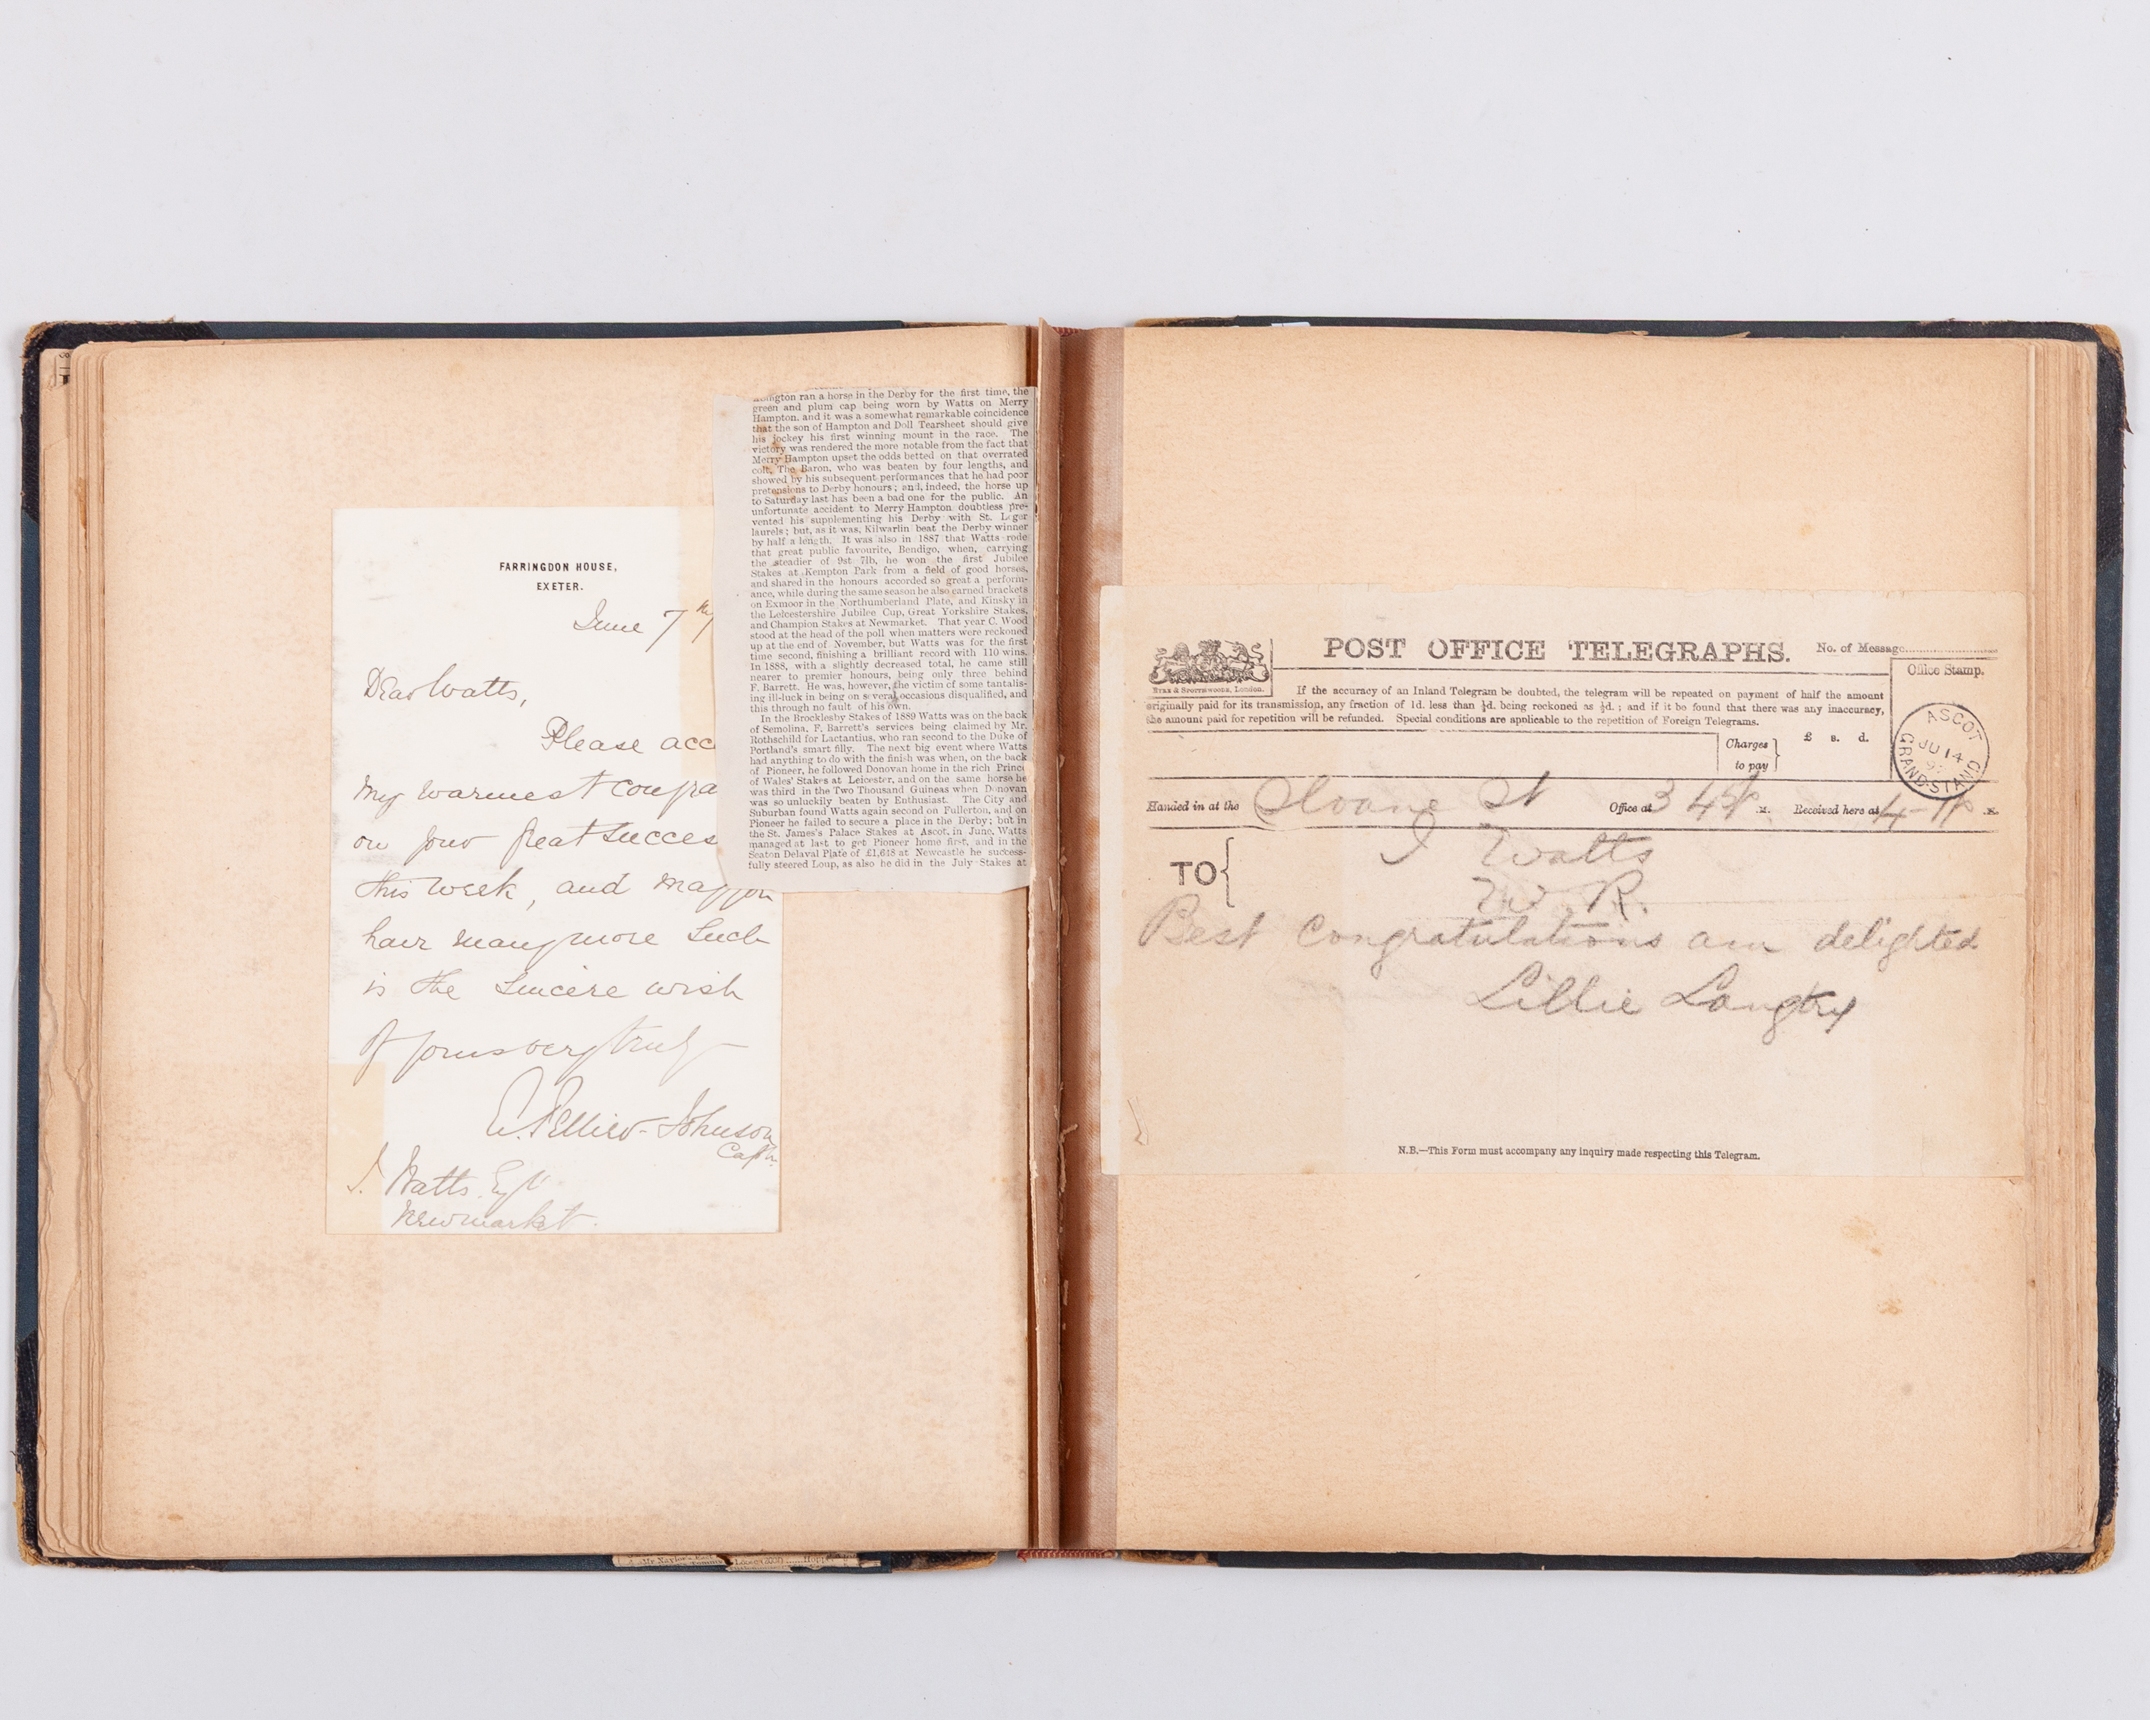 FARRINGDON HOUSE,
EXETER.
June 7th
Dear Watts,
Please acc
my warmest congra
on your great succes
this week, and may you
have many more such
is the sincere wish
of yours very truly
E. Pellew-Johnson
Capt.
J. Watts Esqr
Newmarket.
ington ran a horse in the Derby for the first time, the
green and plum cap being worn by Watts on Merry
Hampton, and it was a somewhat remarkable coincidence
that the son of Hampton and Doll Tearsheet should give
his jockey his first winning mount in the race. The
victory was rendered the more notable from the fact that
Merry Hampton upset the odds betted on that overrated
colt, The Baron, who was beaten by four lengths, and
showed by his subsequent performances that he had poor
pretensions to Derby honours; and, indeed, the horse up
to Saturday last has been a bad one for the public. An
unfortunate accident to Merry Hampton doubtless pre-
vented his supplementing his Derby with St. Leger
laurels; but, as it was, Kilwarlin beat the Derby winner
by half a length. It was also in 1887 that Watts rode
that great public favourite, Bendigo, when, carrying
the steadier of 9st 7lb, he won the first Jubilee
Stakes at Kempton Park from a field of good horses,
and shared in the honours accorded so great a perform-
ance, while during the same season he also earned brackets
on Exmoor in the Northumberland Plate, and Kinsky in
the Leicestershire Jubilee Cup, Great Yorkshire Stakes,
and Champion Stakes at Newmarket. That year C. Wood
stood at the head of the poll when matters were reckoned
up at the end of November, but Watts was for the first
time second, finishing a brilliant record with 110 wins.
In 1888, with a slightly decreased total, he came still
nearer to premier honours, being only three behind
F. Barrett. He was, however, the victim of some tantalis-
ing ill-luck in being on several occasions disqualified, and
this through no fault of his own.
In the Brocklesby Stakes of 1889 Watts was on the back
of Semolina, F. Barrett's services being claimed by Mr.
Rothschild for Lactantius, who ran second to the Duke of
Portland's smart filly. The next big event where Watts
had anything to do with the finish was when, on the back
of Pioneer, he followed Donovan home in the rich Prince
of Wales' Stakes at Leicester, and on the same horse he
was third in the Two Thousand Guineas when Donovan
was so unluckily beaten by Enthusiast. The City and
Suburban found Watts again second on Fullerton, and on
Pioneer he failed to secure a place in the Derby; but in
the St. James's Palace Stakes at Ascot, in June, Watts
managed at last to get Pioneer home first, and in the
Seaton Delaval Plate of £1,648 at Newcastle he success-
fully steered Loup, as also he did in the July Stakes at
POST OFFICE TELEGRAPHS. No. of Message
EYRE & SPOTTISWOODE, London.
Office Stamp.
If the accuracy of an Inland Telegram be doubted, the telegram will be repeated on payment of half the amount
originally paid for its transmission, any fraction of 1d. less than ½d. being reckoned as ½d.; and if it be found that there was any inaccuracy,
the amount paid for repetition will be refunded. Special conditions are applicable to the repetition of Foreign Telegrams.
Charges to pay } £ s. d.
ASCOT
JU 14
GRAND-STAND
Handed in at the Sloane St Office at 3 45 P M. Received here at P M.
TO { J Watts
W. R.
Best congratulations am delighted
Lillie Langtry
N.B.—This Form must accompany any inquiry made respecting this Telegram.